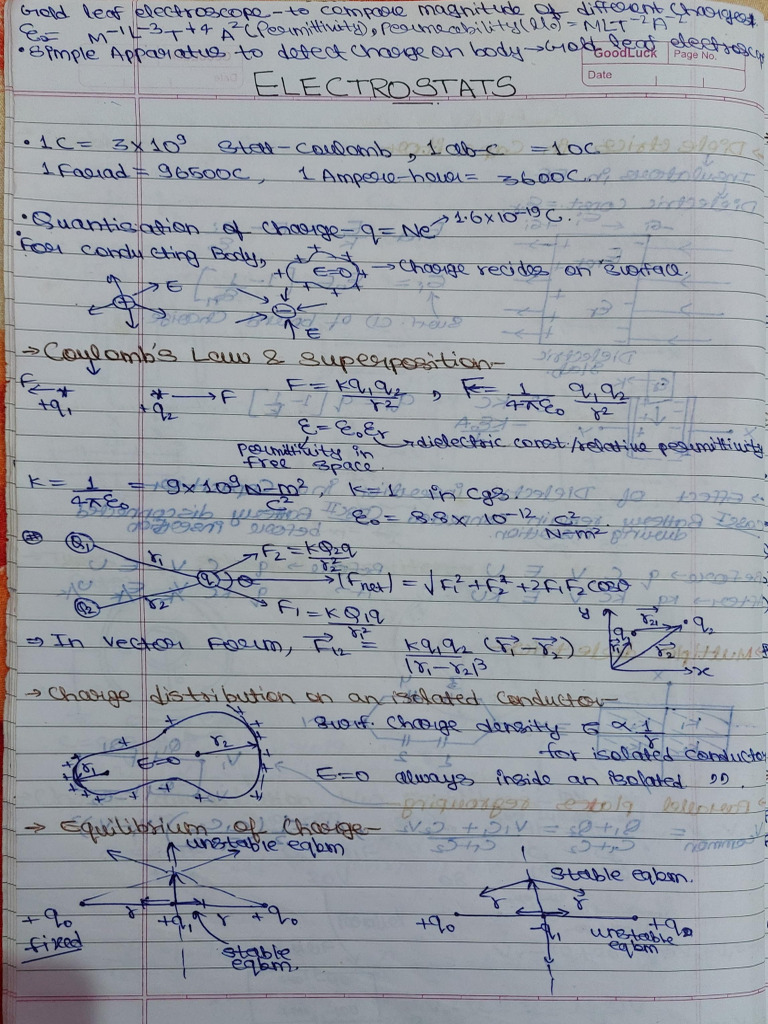 Gold leaf electroscope - to compare magnitude of different charges
ε₀ = M⁻¹L⁻³T⁺⁴A² (Permittivity), permeability(μ₀) = MLT⁻²A⁻²
• Simple Apparatus to detect charge on body → Gold leaf electroscope
GoodLuck Page No.
Date
ELECTROSTATS
• 1C = 3×10⁹ Stat-Coulomb, 1 ab-c = 10C
1 Farad = 96500C, 1 Ampere-hour = 3600C.
• Quantisation of charge- q = Ne → 1.6×10⁻¹⁹C.
• For conducting Body, E=0 → Charge recides on surface.
E
E
→ Coulomb's Law & Superposition-
F ← +q₁ +q₂ → F F = Kq₁q₂/r² , F = 1/4πε₀ q₁q₂/r²
ε = ε₀εᵣ → dielectric const./relative permittivity
permittivity in free space.
K = 1/4πε₀ = 9×10⁹ N-m²/C², K=1 in cgs.
ε₀ = 8.8×10⁻¹² C²/N-m².
Q₁ r₁ q θ F₂ = KQ₂q/r²
|Fnet| = √F₁²+F₂²+2F₁F₂cosθ
Q₂ r₂ F₁ = KQ₁q/r²
⇒ In vector Form, F⃗₁₂ = Kq₁q₂ (r⃗₁-r⃗₂)/|r₁-r₂|³
y q₁ r⃗₂₁ q₂ r⃗₁ r⃗₂ x
→ Charge distribution on an isolated conductor-
r₁ E=0 r₂
surf. Charge density σ ∝ 1/r
for isolated conductor
E=0 always inside an isolated ,, .
→ Equilibrium of Charge-
unstable eqbm
+q₀ r +q₁ r +q₀
fixed
stable eqbm.
stable eqbm.
+q₀ r -q₁ r +q₀
unstable eqbm